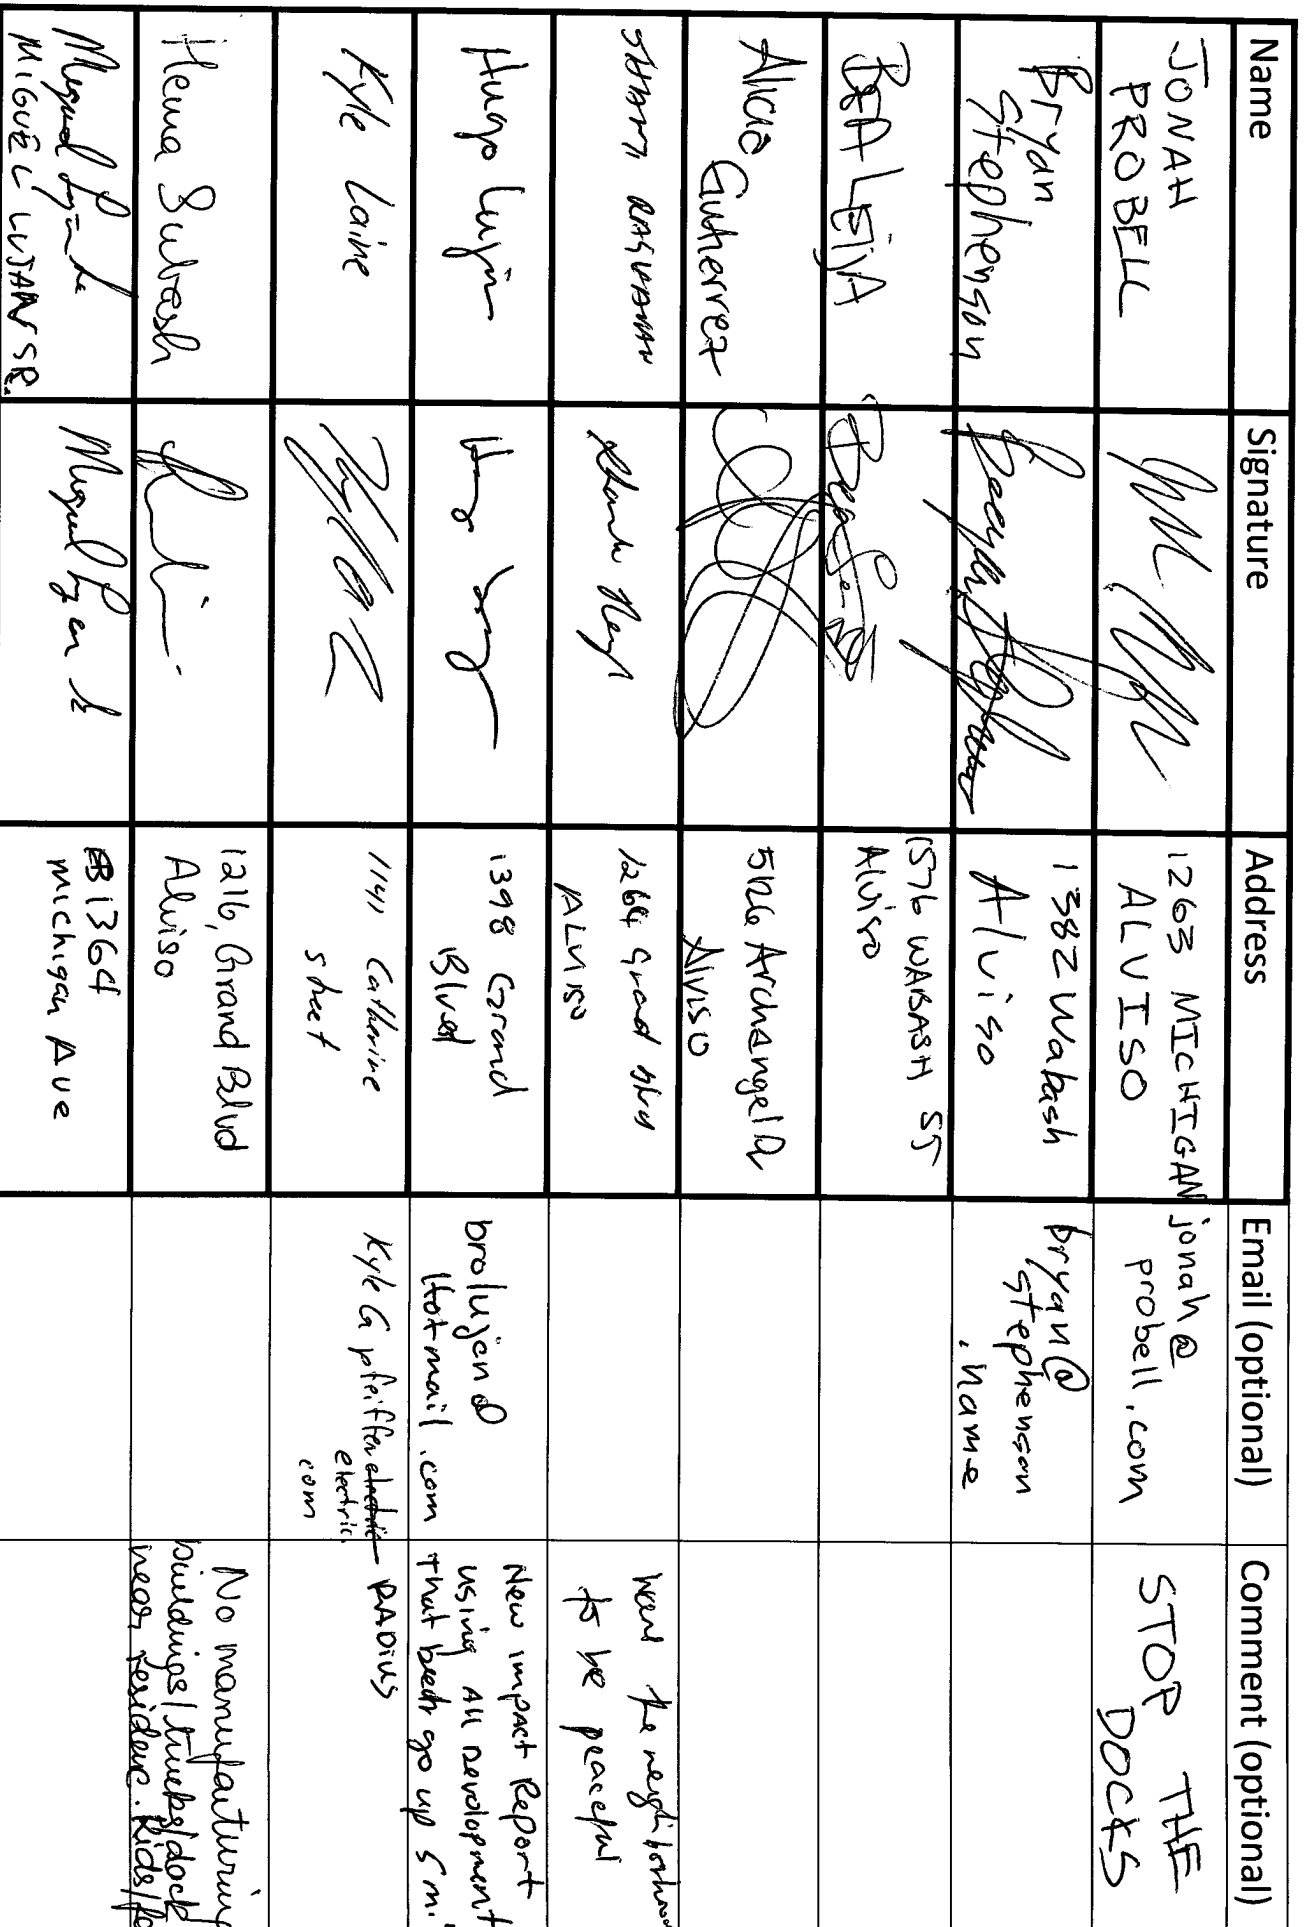 Name Signature Address Email (optional) Comment (optional)
JONAH
PROBELL
1263 MICHIGAN
ALVISO
jonah@
probell.com
STOP THE
DOCKS
Bryan
Stephenson
1382 Wabash
Alviso
bryan@
stephenson
.name
BEA LEIJA
1576 WABASH ST
Alviso
Alicia
Gutierrez
5126 Archangel Dr
Alviso
SHANTI RAGHAVAN
1264 Grand Blvd
ALVISO
want the neighborhood
to be peaceful
Hugo Lujan
1398 Grand
Blvd
brolujan@
Hotmail.com
New impact Report
using All Devolopment
that been go up 5 mi.
RADIUS
Kyle Laine
1141 Catherine
street
Kyle@pfeiffer
electric.
com
Hema Subash
1216, Grand Blvd
Alviso
No manufaturing
buildings/trucks/dock
near residenc. Kids/
Miguel Lujan
MIGUEL LUJAN SR.
Miguel Lujan
1364
Michigan Ave